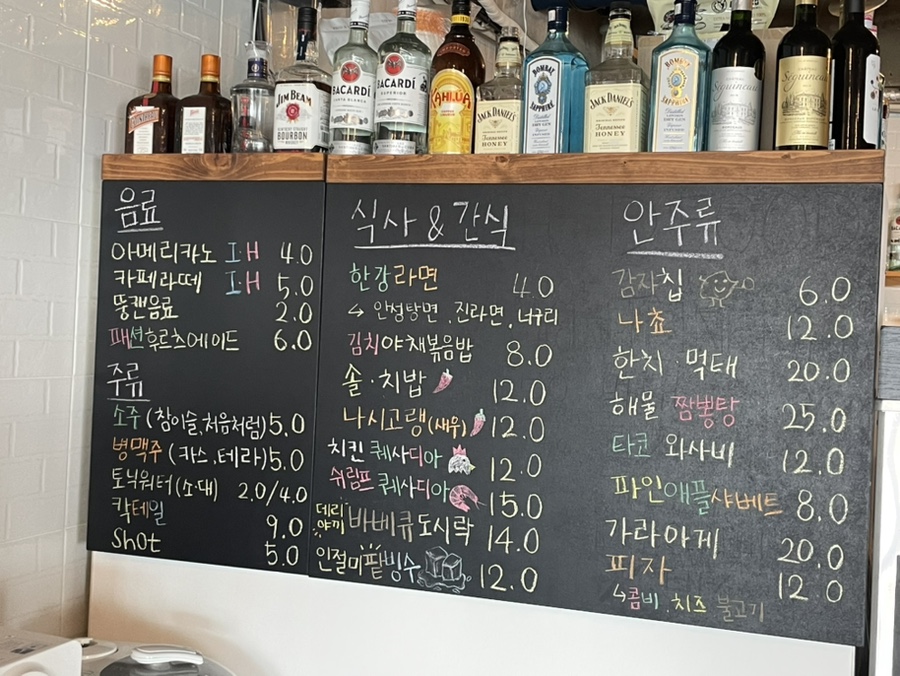 JIM BEAM
BOURBON
BACARDÍ
BACARDÍ
SUPERIOR
KAHLUA
JACK DANIEL'S
Tennessee
HONEY
BOMBAY
SAPPHIRE
JACK DANIEL'S
Tennessee
HONEY
BOMBAY
SAPPHIRE
음료
아메리카노 I·H 4.0
카페라떼 I·H 5.0
뚱캔음료 2.0
패션후르츠에이드 6.0
주류
소주 (참이슬,처음처럼) 5.0
병맥주 (카스,테라) 5.0
토닉워터 (소·대) 2.0/4.0
칵테일 9.0
Shot 5.0
식사 & 간식
한강라면 4.0
↳ 안성탕면 . 진라면 . 너구리
김치야채볶음밥 8.0
솔·치밥 12.0
나시고랭(새우) 12.0
치킨 퀘사디아 12.0
쉬림프 퀘사디아 15.0
데리야끼 바베큐도시락 14.0
인절미팥빙수 12.0
안주류
감자칩 6.0
나쵸 12.0
한치·먹태 20.0
해물 짬뽕탕 25.0
타코 와사비 12.0
파인애플샤베트 8.0
가라아게 20.0
피자 12.0
↳콤비 . 치즈 불고기